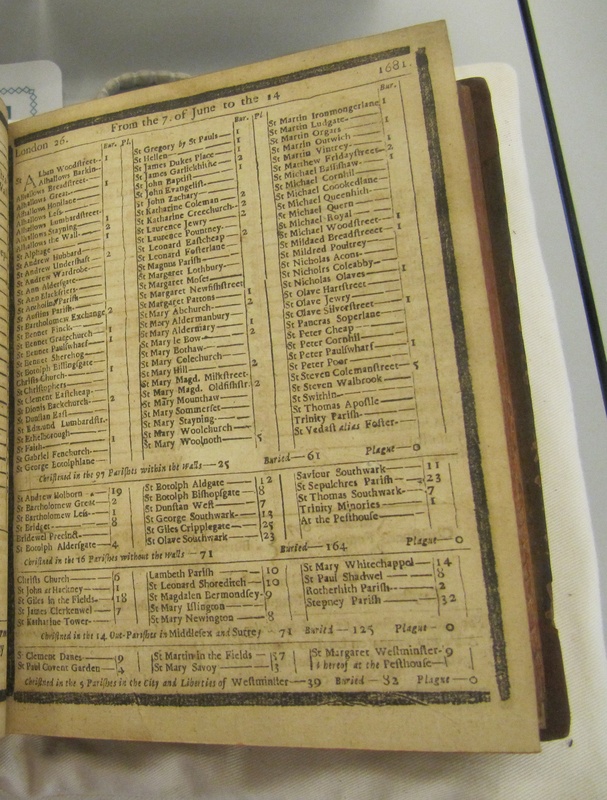 London 26. From the 7. of June to the 14 1681.
Bur. Pl.
St ALban Woodstreet
Alhallows Barkin 1
Alhallows Breadstreet 1
Alhallows Great
Alhallows Honilane
Alhallows Less
Alhallows Lumbardstreet 1
Alhallows Stayning 2
Alhallows the Wall 1
St Alphage
St Andrew Hubbard 2
St Andrew Undershaft
St Andrew Wardrobe
St Ann Aldersgate
St Ann Blackfriers
St Antholins Parish
St Austins Parish
St Bartholomew Exchange 2
St Bennet Finck
St Bennet Gracechurch 1
St Bennet Paulswharf 1
St Bennet Sherehog
St Botolph Billingsgate
Christs Church 1
St Christophers
St Clement Eastcheap
St Dionis Backchurch 2
St Dunstan East
St Edmund Lumbardstr.
St Ethelborough
St Faith 1
St Gabriel Fenchurch
St George Botolphlane
Bur. Pl.
St Gregory by St Pauls 1
St Hellen 1
St James Dukes Place 2
St James Garlickhithe 1
St John Baptist
St John Evangelist
St John Zachary
St Katharine Coleman 2
St Katharine Creechurch 2
St Laurence Jewry
St Laurence Pountney 2
St Leonard Eastcheap
St Leonard Fosterlane
St Magnus Parish
St Margaret Lothbury
St Margaret Moses
St Margaret Newfishstreet
St Margaret Pattons 1
St Mary Abchurch 2
St Mary Aldermanbury 1
St Mary Aldermary 2
St Mary le Bow
St Mary Bothaw
St Mary Colechurch
St Mary Hill 2
St Mary Magd. Milkstreet
St Mary Magd. Oldfishstr. 2
St Mary Mounthaw
St Mary Sommerset
St Mary Stayning
St Mary Woolchurch
St Mary Woolnoth 5
Bur.
St Martin Ironmongerlane 1
St Martin Ludgate
St Martin Orgars 1
St Martin Outwich 1
St Martin Vintrey
St Matthew Fridaystreet 2
St Michael Bassishaw 1
St Michael Cornhil
St Michael Crookedlane
St Michael Queenhith
St Michael Quern
St Michael Royal
St Michael Woodstreet 1
St Mildred Breadstreet 1
St Mildred Poultrey
St Nicholas Acons
St Nicholas Coleabby
St Nicholas Olaves
St Olave Hartstreet 1
St Olave Jewry
St Olave Silverstreet 1
St Pancras Soperlane
St Peter Cheap
St Peter Cornhil
St Peter Paulswharf 1
St Peter Poor
St Steven Colemanstreet 5
St Steven Walbrook
St Swithin
St Thomas Apostle
Trinity Parish
St Vedast alias Foster
Christned in the 97 Parishes within the walls 25 Buried 61 Plague 0
St Andrew Holborn 19
St Bartholomew Great 2
St Bartholomew Less 1
St Bridget 8
Bridewel Precinct
St Botolph Aldersgate 4
St Botolph Aldgate 12
St Botolph Bishopsgate 8
St Dunstan West 7
St George Southwark 13
St Giles Cripplegate 25
St Olave Southwark 23
Saviour Southwark 11
St Sepulchres Parish 23
St Thomas Southwark 7
Trinity Minories 1
At the Pesthouse
Christned in the 16 Parishes without the walls 71 Buried 164 Plague 0
Christs Church 6
St John at Hackney 1
St Giles in the Fields 18
St James Clerkenwel 7
St Katharine Tower
Lambeth Parish 10
St Leonard Shoreditch 10
St Magdalen Bermondsey 9
St Mary Islington
St Mary Newington 8
St Mary Whitechappel 14
St Paul Shadwel 8
Rotherhith Parish 2
Stepney Parish 32
Christned in the 14 Out-Parishes in Middlesex and Surrey 71 Buried 125 Plague 0
St Clement Danes 9
St Paul Covent Garden 4
St Martin in the Fields 57
St Mary Savoy 3
St Margaret Westminster 9
hereof at the Pesthouse
Christned in the 5 Parishes in the City and Liberties of Westminster 39 Buried 82 Plague 0